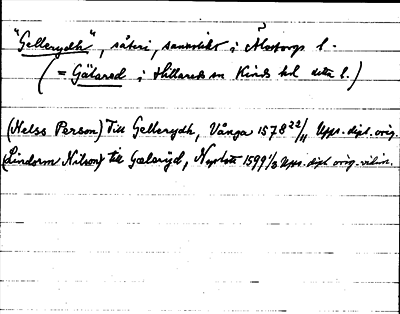 "Gellerydh", säteri, sannolikt i Älvsborgs l.
(= Gälared i Hillareds sn Kinds hd detta l.)
(Nelss Person) Till Gellerydh, Vånga 1578 22/11 Upps. dipl. orig.
(Lindorm Nilson) till Gælaryd, 1599 1/3 Upps. dipl. orig.